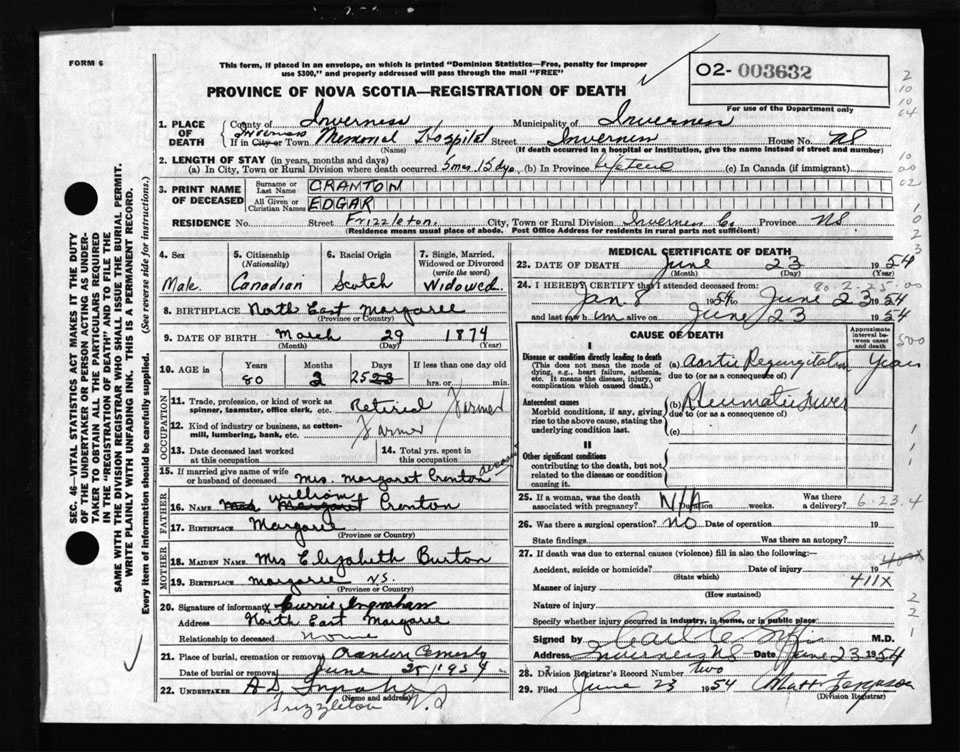 FORM 6
This form, if placed in an envelope, on which is printed "Dominion Statistics—Free, penalty for improper
use $300," and properly addressed will pass through the mail "FREE"
02- 003632
PROVINCE OF NOVA SCOTIA—REGISTRATION OF DEATH
For use of the Department only
1. PLACE OF DEATH
County of Inverness Municipality of Inverness
If in City or Town Inverness Memorial Hospital Street Inverness House No. NS
(Name) (If death occurred in a hospital or institution, give the name instead of street and number)
2. LENGTH OF STAY (in years, months and days)
(a) In City, Town or Rural Division where death occurred 5 mos. 15 dys. (b) In Province Lifetime (c) In Canada (if immigrant)
3. PRINT NAME OF DECEASED
Surname or Last Name CRANTON
All Given or Christian Names EDGAR
RESIDENCE No. Street Frizzleton. City, Town or Rural Division Inverness Co. Province NS
(Residence means usual place of abode. Post Office Address for residents in rural parts not sufficient)
4. Sex
Male
5. Citizenship
(Nationality)
Canadian
6. Racial Origin
Scotch
7. Single, Married,
Widowed or Divorced
(write the word)
Widowed
8. BIRTHPLACE North East Margaree
(Province or Country)
9. DATE OF BIRTH March 29 1874
(Month) (Day) (Year)
10. AGE in
Years Months Days If less than one day
80 2 25 23 hrs. or min.
OCCUPATION
11. Trade, profession, or kind of work as
spinner, teamster, office clerk, etc. Retired Farmer
12. Kind of industry or business, as cotton-
mill, lumbering, bank, etc. Farmer
13. Date deceased last worked
at this occupation
14. Total yrs. spent in
this occupation
15. If married give name of wife
or husband of deceased Mrs. Margaret Cranton deceased
FATHER
16. NAME Mrs Margaret William Cranton
17. BIRTHPLACE Margaree
(Province or Country)
MOTHER
18. MAIDEN NAME Mrs Elizabeth Burton
19. BIRTHPLACE Margaree NS.
(Province or Country)
20. Signature of informant X Currie Ingraham
Address North East Margaree
Relationship to deceased None
21. Place of burial, cremation or removal Cemetery
Date of burial or removal June 25, 1954
22. UNDERTAKER A D
(Name and address)
Frizzleton N.S
MEDICAL CERTIFICATE OF DEATH
23. DATE OF DEATH June 23 1954
(Month) (Day) (Year)
80 2-25-00
24. I HEREBY CERTIFY that I attended deceased from:
Jan 8 1954 to June 23 1954
and last saw him alive on June 23 1954
CAUSE OF DEATH
Approximate
interval be-
tween onset
and death
I
Disease or condition directly leading to death
(This does not mean the mode of
dying, e.g., heart failure, asthenia,
etc. It means the disease, injury, or
complication which caused death.)
(a) Aortic Regurgitation Years
due to (or as a consequence of)
Antecedent causes
Morbid conditions, if any, giving
rise to the above cause, stating the
underlying condition last.
(b) Rheumatic Fever
due to (or as a consequence of)
(c)
II
Other significant conditions
contributing to the death, but not
related to the disease or condition
causing it.
25. If a woman, was the death
associated with pregnancy? N/A Duration weeks. Was there
a delivery? 6-23-4
26. Was there a surgical operation? NO Date of operation 19
State findings Was there an autopsy?
27. If death was due to external causes (violence) fill in also the following:—
Accident, suicide or homicide? Date of injury 19
(State which)
411X
Manner of injury
(How sustained)
Nature of injury
Specify whether injury occurred in industry, in home, or in public place
Signed by M.D.
Address Inverness NS Date June 23 1954
28. Division Registrar's Record Number two
29. Filed June 23 1954 Matt Ferguson
(Division Registrar)
SEC. 46—VITAL STATISTICS ACT MAKES IT THE DUTY
OF THE UNDERTAKER OR PERSON ACTING AS UNDER-
TAKER TO OBTAIN ALL THE PARTICULARS REQUIRED
IN THE "REGISTRATION OF DEATH" AND TO FILE THE
SAME WITH THE DIVISION REGISTRAR WHO SHALL ISSUE THE BURIAL PERMIT.
WRITE PLAINLY WITH UNFADING INK. THIS IS A PERMANENT RECORD.
Every item of information should be carefully supplied. (See reverse side for instructions.)